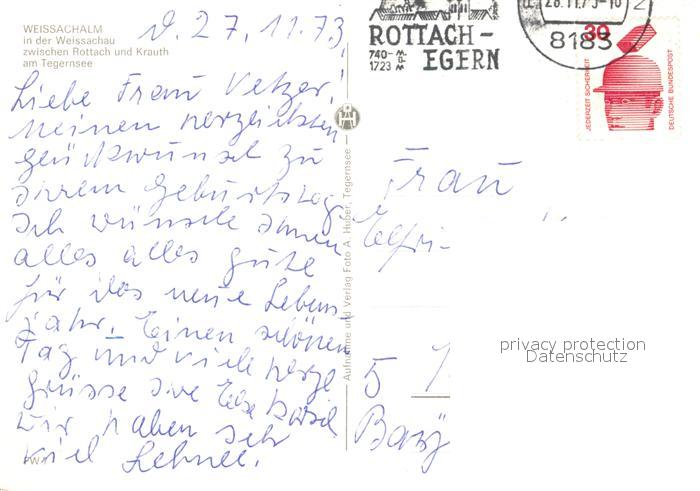 WEISSACHALM
in der Weissachau
zwischen Rottach und Krauth
am Tegernsee
d. 27.11.73
Liebe Frau Vetzer!
Meinen herzlichsten
Glückwunsch zu
Ihrem Geburtstag.
Ich wünsche Ihnen
alles alles gute
für das neue Lebens-
jahr. Einen schönen
Tag und viele herzl
Grüsse Ihre
wir haben sehr
viel Schnee.
Aufnahme und Verlag Foto A. Huber, Tegernsee
ROTTACH-
EGERN
740-
1723
28.11.73-16
8183
2
30
JEDERZEIT SICHERHEIT
DEUTSCHE BUNDESPOST
Frau
Elfri-
5
privacy protection
Datenschutz